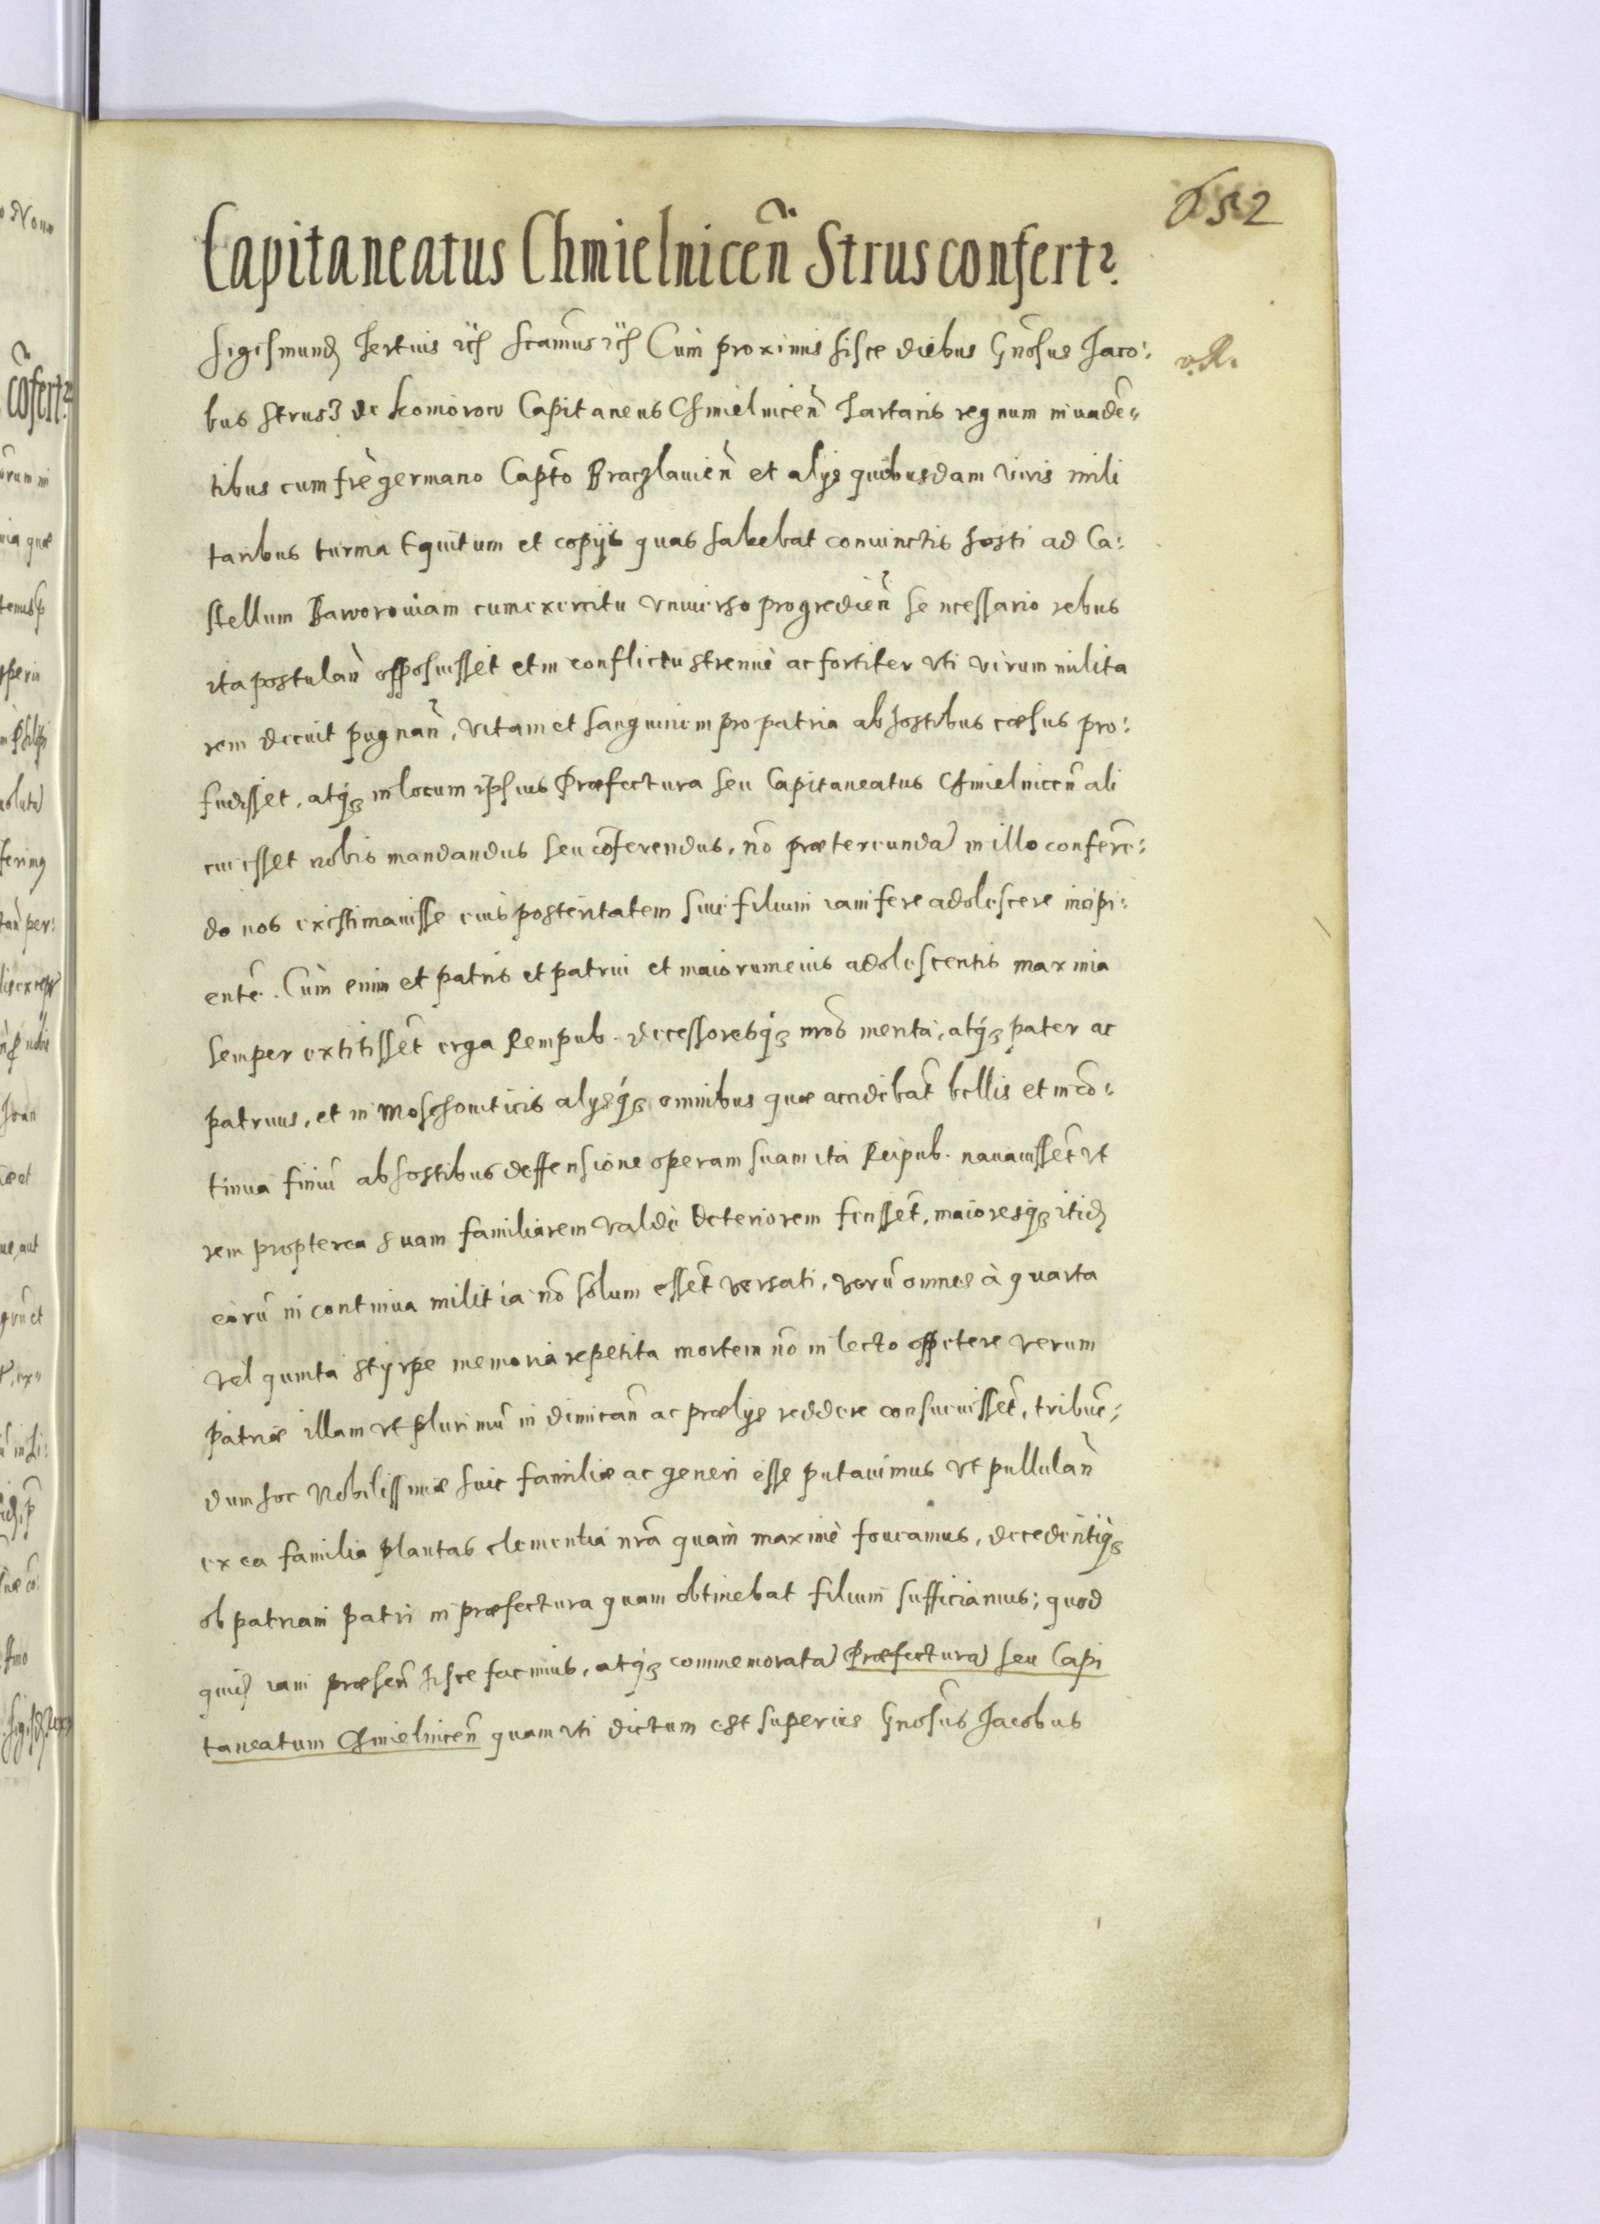 652
Capitaneatus Chmielnicen̄ Strus confert᷑
Sigismund9 Tertius etc̄ Scāmus etc̄ Cum proximis hisce diebus Gnōsus Jaco:
bus Strus3 de Komorow Capitaneus Chmielnicen̄ Tartaris regnum inuadē=
tibus cum frē germano Captō Braczlauien̄ et alijs quibusdam viris mili
taribus turma Equitum et copijs quas habebat coniunctis hosti ad Ca:
stellum Baworouiam cum exercitu vniuerso progredien̄ se ncessario rebus
ita postulan̄ opposuisset et in conflictu strenuè ac fortiter vti virum milita
rem decuit pugnan̄, vitam et sanguinem pro patria ab hostibus cæsus pro:
fudisset, atq́ȝ in locum ipsius Præfectura seu Capitaneatus Chmielnicen̄ ali
cui esset nobis mandandus seu cōferendus, nō prætereundā in illo conferē:
do nos existimauisse eius posteritatem siue filium iam fere adolescere incipi:
entē. Cùm enim et patris et patrui et maiorum eius adolescentis maxima
semper extitissēt erga Rempub. decessoresq́ȝ nrōs merita, atq́ȝ pater ac
patruus, et in Moschouiticis alijsq́ȝ omnibus quæ accidebāt bellis et in cō:
tinua finiū ab hostibus deffensione operam suam ita Reipub. nauauissēt vt
rem propterea suam familiarem valdè deteriorem fecissēt, maioresq́ȝ itid9
eorū in continua militia nō solum essēt versati, verū omnes à quarta
vel quinta styrpe memoria repetita mortem nō in lecto oppetere verum
patriæ illam vt plurimū in dimican̄ ac prælijs reddere consueuissēt, tribuē:
dum hoc Nobilissimæ huic familiæ ac generi esse putauimus vt pullulan̄
ex ea familia plantas clementia nrā quam maximè foueamus, decedentiq́ȝ
ob patriam patri in præfectura quam obtinebat filium sufficiamus; quod
quid9 iam præsen̄ hisce facimus, atq́ȝ commemoratā Præfecturā seu Capi
taneatum Chmielnicen̄ quam vti dictum est superius Gnōsus Jacobus